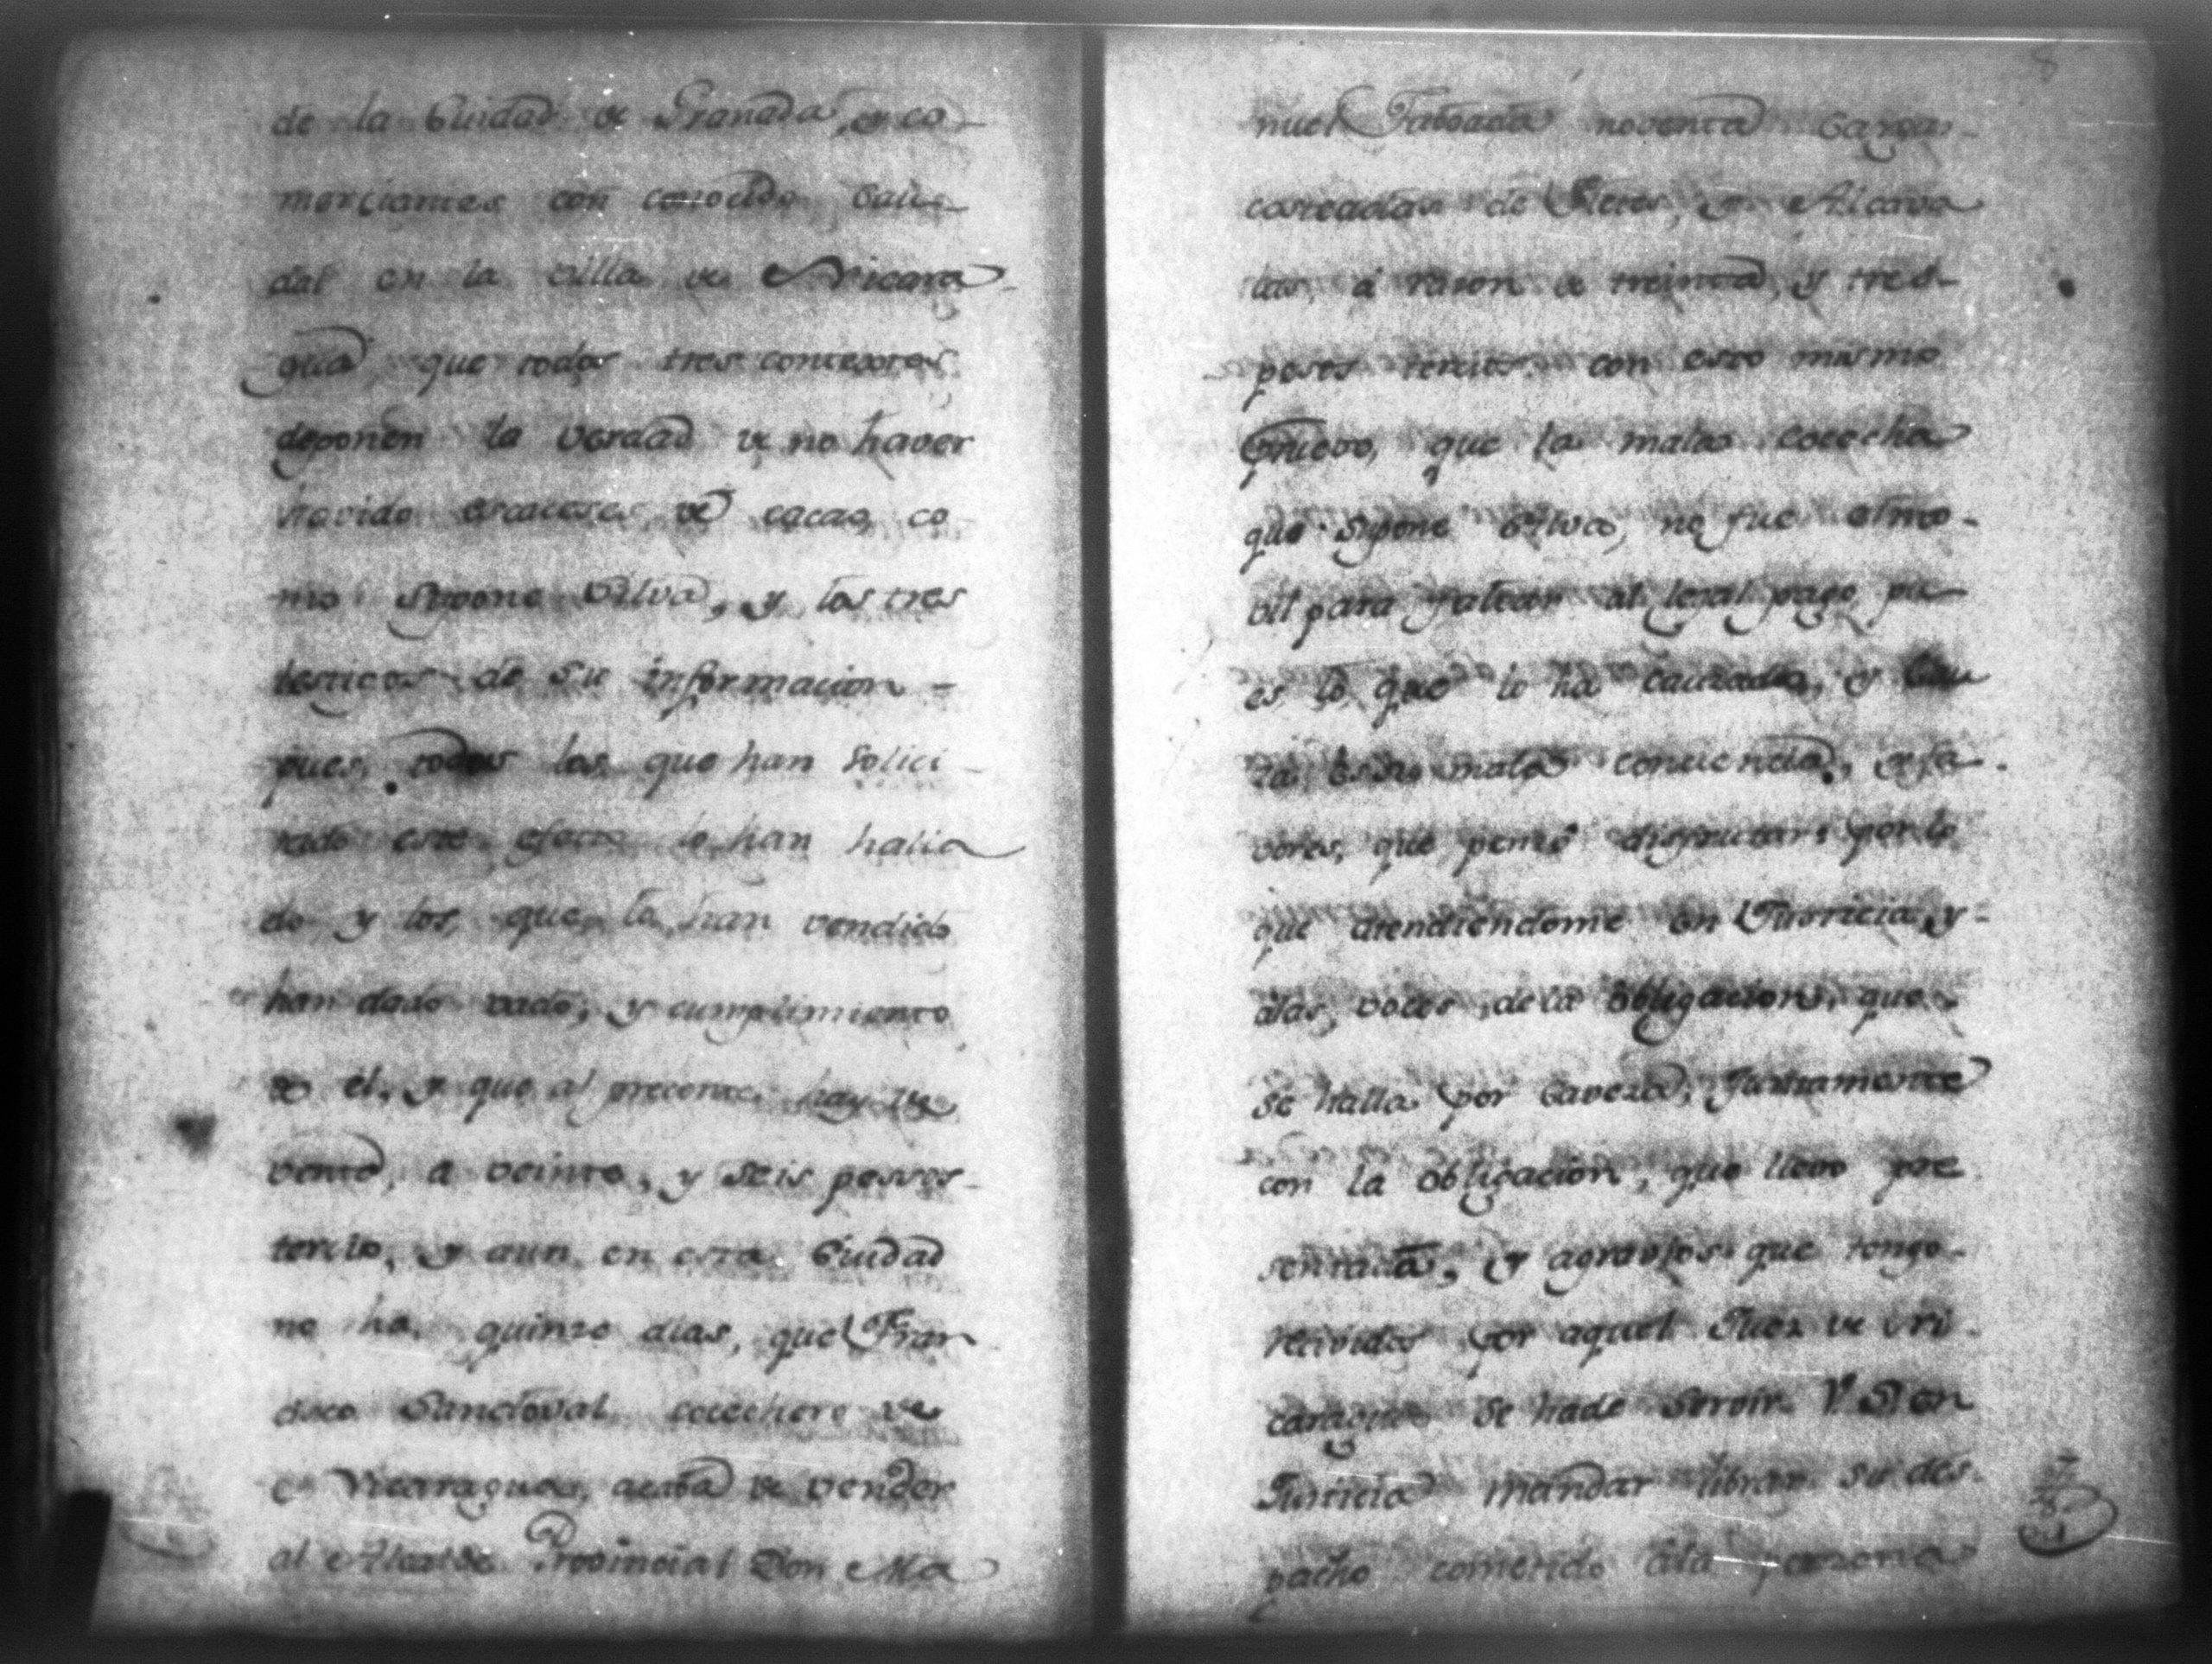 de la Ciudad de Granada, y co-
merciantes con conocido Cau-
dal en la villa de Nicara-
gua, que todos tres contextes
deponen la verdad de no haver
havido escaceses de cacao, co
mo supone Silva, y los tres
testigos de su informacion -
pues, todos los que han solici-
tado este efecto lo han halla
do y los que lo han vendido
han dado vado, y cumplimiento
de el, y que al precente hay de
venta, a veinte, y seis pessos-
tercio, y aun en esta Ciudad
no ha quinze dias, que Fran
cisco Sandoval cocechero de
Nicaragua, acaba de vender
al Alcalde Provincial Don Ma
8
nuel Taboada noventa cargas
costeadas de fletes, y Alcava
las, á rason de treinta, y tres-
pesos tercio: con esto mismo
pruevo, que la mala cocecha
que supone Silva, no fue el mo-
vil para faltar al legal pago pu-
es lo que lo ha causado, y
es su mala conciencia, y fa-
vores, que penso disfrutar: por lo
que atendiendome en Justicia, y-
alas voces de la obligacion, que
se halla por caveza, juntamente
con la obligacion, que llevo pre
sentada, y agravios que tengo-
recividos por aquel Juez de Ni-
caragua se hade servir V. S. en
Justicia mandar librar su des-
pacho cometido ála persona